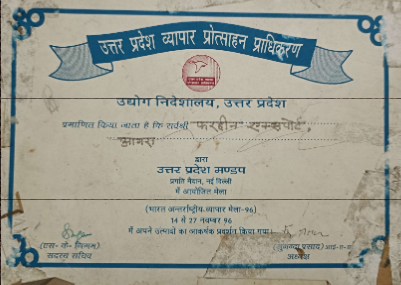 उत्तर प्रदेश व्यापार प्रोत्साहन प्राधिकरण
उद्योग निदेशालय, उत्तर प्रदेश
प्रमाणित किया जाता है कि सर्वश्री फरहीन एक्सपोर्ट,
आगरा
द्वारा
उत्तर प्रदेश मण्डप
प्रगति मैदान, नई दिल्ली
में आयोजित मेला
(भारत अन्तर्राष्ट्रीय-व्यापार मेला-96)
14 से 27 नवम्बर 96
में अपने उत्पादों का आकर्षक प्रदर्शन किया गया।
(एस- के- निगम)
प्रसाद) आई-ए-एस
सदस्य सचिव
अध्यक्ष